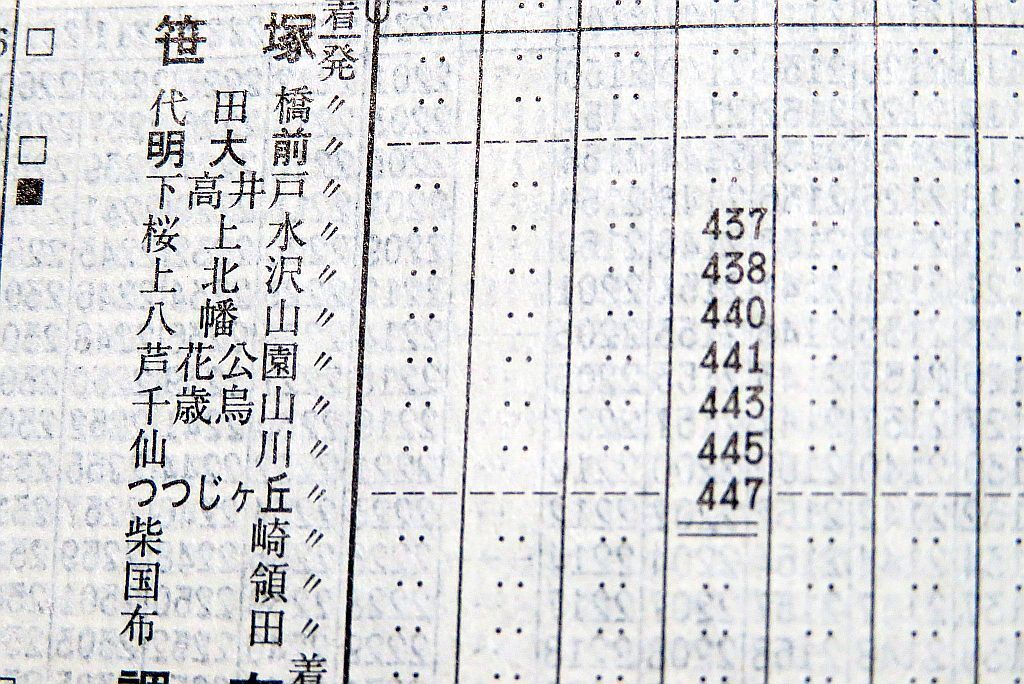 着
笹塚 発
代田橋 〃
明大前 〃
下高井戸 〃
桜上水 〃 437
上北沢 〃 438
八幡山 〃 440
芦花公園 〃 441
千歳烏山 〃 443
仙川 〃 445
つつじヶ丘 〃 447
柴崎 〃
国領 〃
布田 〃
着